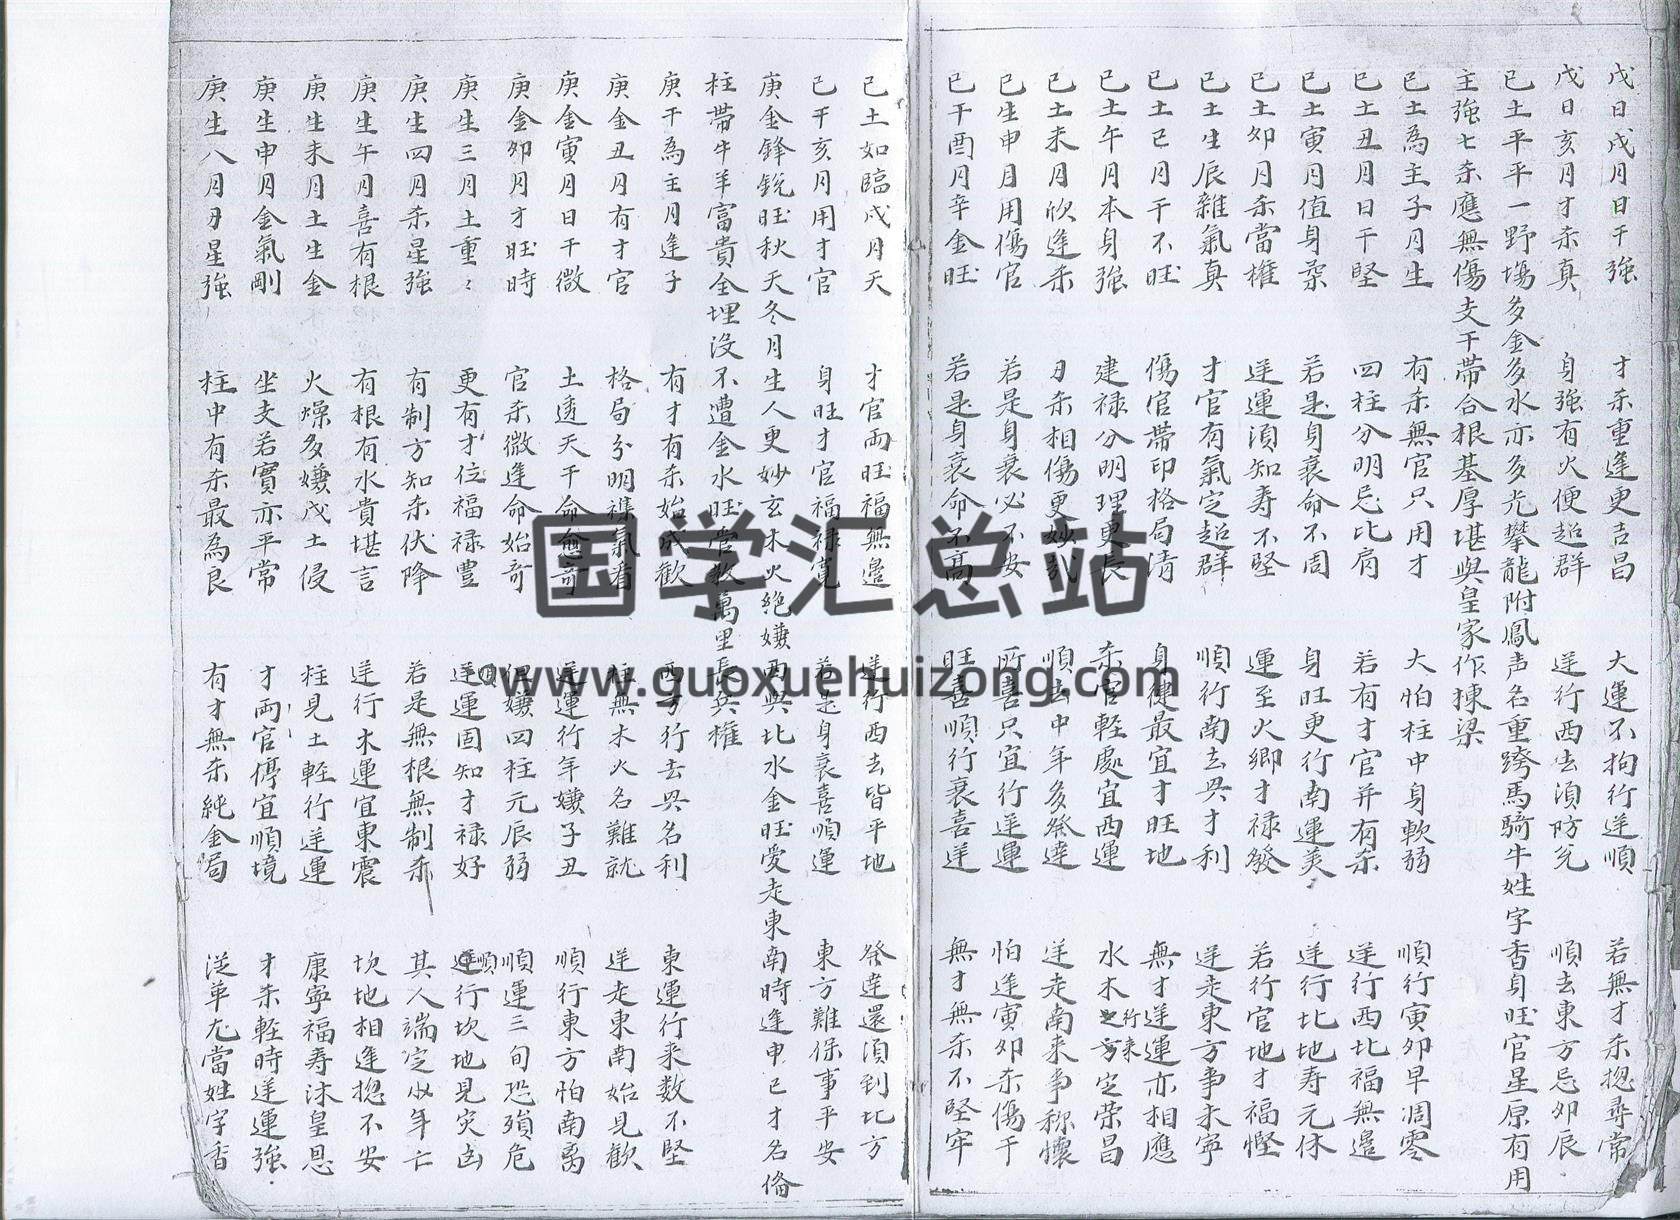 戊日戌月日干強 才杀重逢更吉昌 大運不拘行逆順 若無才杀揔尋常
戊日亥月才杀真 身強有火便超群 逆行西去須防兌 順去東方忌卯辰
己土平平一野塲多金多水亦多光攀龍附鳳声名重跨馬騎牛姓字香身旺官星原有用
主強七杀應無傷支干帶合根基厚堪與皇家作棟梁
己土為主子月生 有杀無官只用才 大怕柱中身軟弱 順行寅卯早凋零
己土丑月日干堅 四柱分明忌比肩 若有才官并有杀 逆行西北福無邊
己土寅月值身柔 若是身衰命不周 身旺更行南運美 逆行北地寿元休
己土卯月杀當權 逆運須知寿不堅 運至火鄉才禄發 若行官地才福慳
己土生辰雜氣真 才官有氣定超群 順行南去興才利 逆走東方事未寧
己土巳月干不旺 傷官帶印格局清 身健最宜才旺地 無才逆運亦相應
己土午月本身強 建禄分明理更長 杀官輕處宜西運 水木之方行來定荣昌
己土未月欣逢杀 刃杀相傷更妙 順去中年多發達 逆走南來事称懷
己生申月用傷官 若是身衰必不安 所喜只宜行逆運 怕逢寅卯杀傷干
己干酉月辛金旺 若是身衰命不高 旺喜順行衰喜逆 無才無杀不堅牢
己土如臨戌月天 才官两旺福無邊 逆行西去皆平地 發達還須到北方
己干亥月用才官 身旺才官福禄寬 若是身衰喜順運 東方難保事平安
庚金鋒銳旺秋天冬月生人更妙玄木火絶嫌西與北水金旺愛走東南時逢申巳才名俻
柱帶牛羊富貴全埋沒不遭金水旺管教萬里長兵權
庚干為主月逢子 有才有杀始成歡 西方行去興名利 東運行來数不堅
庚金丑月有才官 格局分明襍氣看 柱無木火名難就 逆走東南始見歡
庚金寅月日干微 土透天干命愈奇 逆運行年嫌子丑 順行東方怕南离
庚金卯月才旺時 官杀微逢命始奇 但嫌四柱元辰弱 順運三旬恐殞危
庚生三月土重ミ 更有才位福禄豊 逆順運固知才禄好 逆順行坎地見灾凶
庚生四月杀星強 有制方知杀伏降 若是無根無制杀 其人端定少年亡
庚生午月喜有根 有根有水貴堪言 逆行木運宜東震 坎地相逢揔不安
庚生未月土生金 火燥多嫌戊土侵 柱見土輕行逆運 康寧福寿沐皇恩
庚生申月金氣剛 坐支若實亦平常 才两官停宜順境 才杀輕時逆運強
庚生八月刃星強 柱中有杀最為良 有才無杀純金局 從革尤當姓字香
国学汇总站
www.guoxuehuizong.com